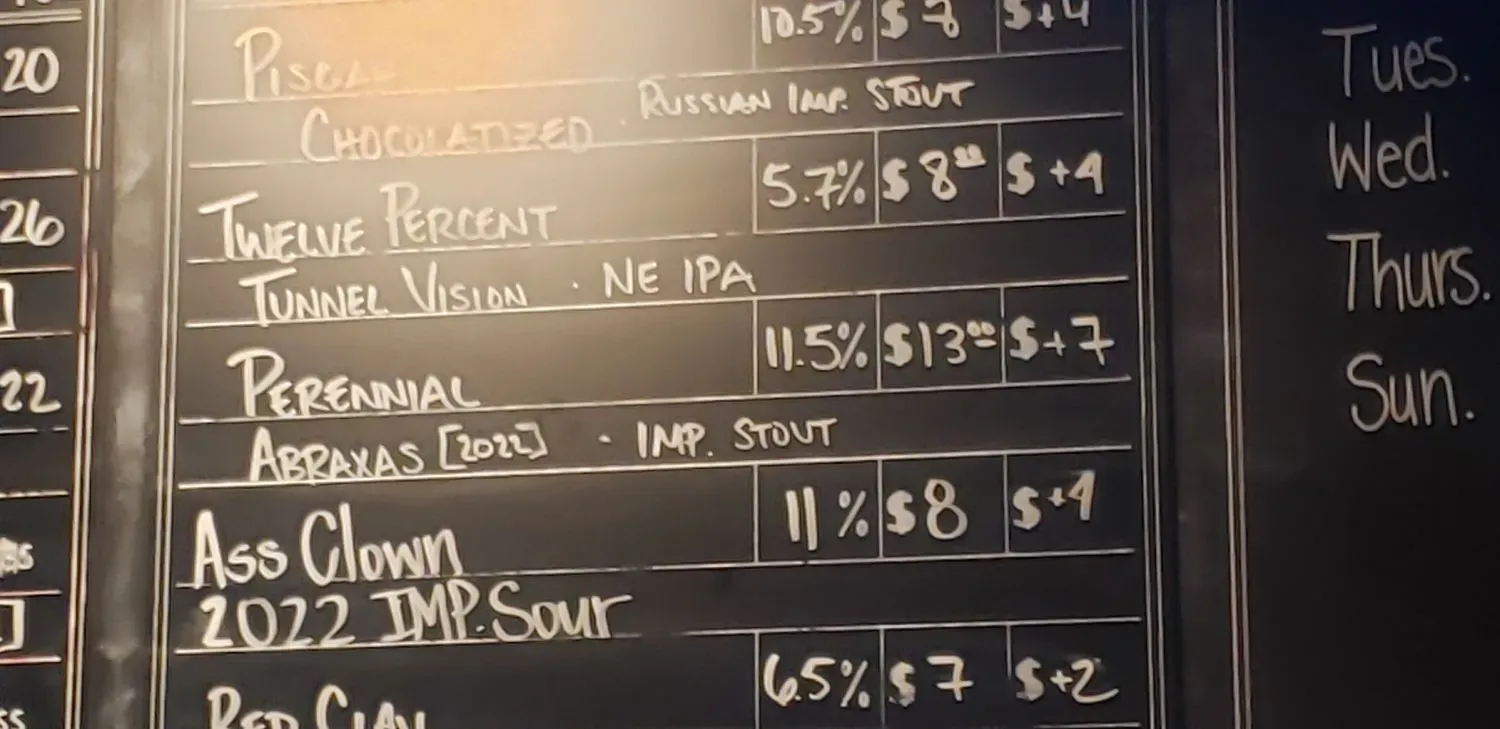 20
26
]
22
]
ss
10.5% $8 $+4
CHOCOLATIZED . RUSSIAN IMP. STOUT
TWELVE PERCENT 5.7% $8⁰⁰ $+4
TUNNEL VISION · NE IPA
PERENNIAL 11.5% $13⁰⁰ $+7
ABRAXAS [2022] · IMP. STOUT
Ass Clown 11% $8 $+4
2022 IMP. Sour
RED CLAY 6.5% $7 $+2
Tues.
Wed.
Thurs.
Sun.